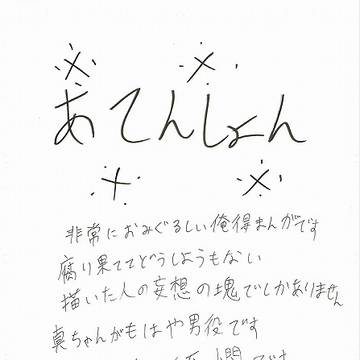 あてんしょん
非常におみぐるしい俺得まんがです
腐り果ててどうしようもない
描いた人の妄想の塊でしかありません
真ちゃんがもはや男役です